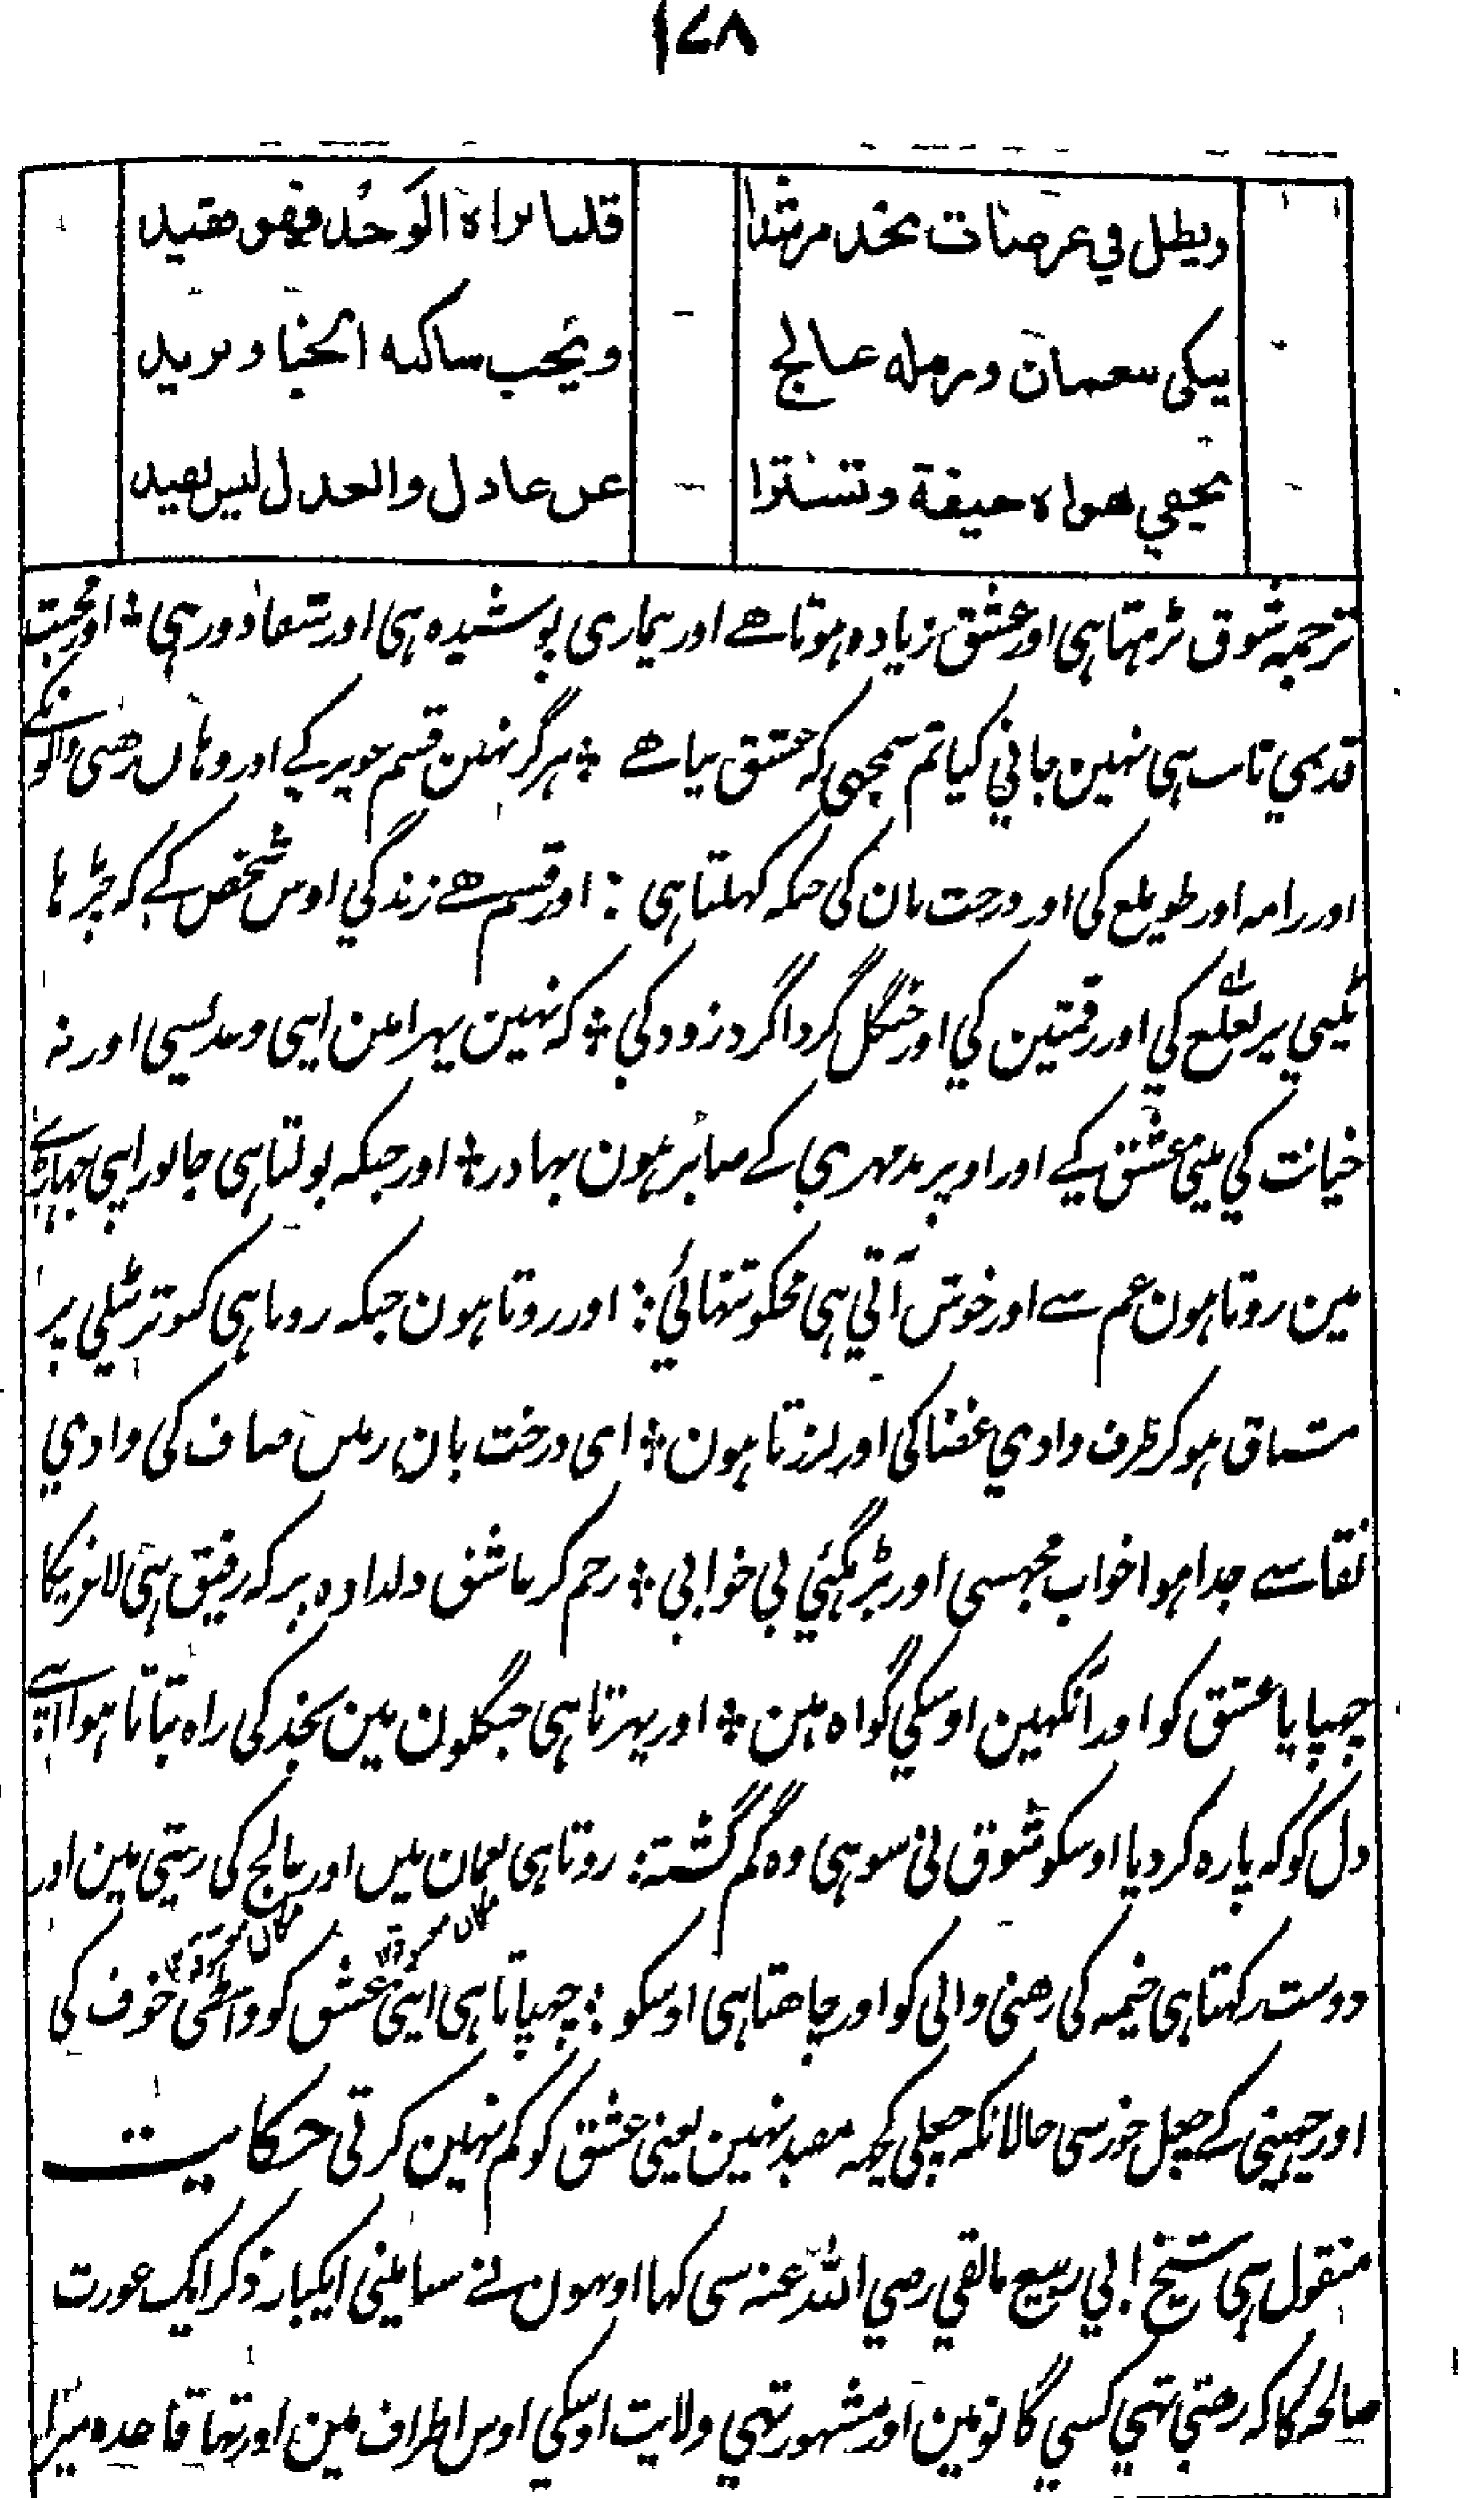 ۱۷۸
ويظل في عرصات نجد مرشدا قلبا براه الوجد فهو فقيد
يبكي بنعمان ورملة عالج ويحب ساكنة الخبا ويريد
يخفي هواه خيفة وتسترا عن عاذل والعدل ليس يفيد
ترجمہ شوق بڑہتا ہی اور عشق زیادہ ہوتا ہے اور بیماری پوشیدہ ہی اور شفا دور ہی ؛ اور محبت
قدیمی ثابت ہی نہین جاتی کیا تم سمجھی کہ عشق نیا ہے ؛ ہرگز نہین قسم حویر کے اور وہاں رہنی والونکے
اور رامہ اور طویلع کی اور درخت بان کی جبکہ کہلتا ہی ؛ اور قسم ہے زندگی اوس شخص کے کہ چڑہا
ٹیلی پر لعلع کی اور رقمتین کی اور جنگل گرداگرد زرود کی ؛ کہ نہین پہرا مین اپنی وعدہ سی اور نہ
خیانت کی مینی عشق کے اور اوپر بدمہری کے صابر ہون بہادر ؛ اور جبکہ بولتا ہی جانور اپنی
مین روتا ہون غم سے اور خوش آتی ہی مجکو تنہائی ؛ اور روتا ہون جبکہ روتا ہی کبوتر ٹیلی پر
مشتاق ہو کر طرف وادی غضا کی اور لرزتا ہون ؛ ای درخت بان زمین صاف کی وادی
نقا سے جدا ہوا خواب مجہسی اور بڑہ گئی بی خوابی ؛ رحم کر عاشق دلدادہ پر کہ رفیق ہی لاغریکا
چہپایا عشق کو اور آنکہین اوسکی گواہ ہین ؛ اور پہرتا ہی جنگلون مین نجد کی راہ بتاتا ہوا اپنے
دل کو کہ پارہ کر دیا اوسکو شوق نی سو ہی وہ گم گشتہ ؛ روتا ہی نعمان میں اور عالج کی ریتی مین اور
دوست رکہتا ہی خیمہ کی رہنی والی کو اور چاہتا ہی اوسکو ؛ چہپاتا ہی اپنی عشق کو واسطی خوف کی
اور چہپنی کے چغل خور سی حالانکہ چغلی کچہ مفید نہین یعنی عشق کو کم نہین کرتی حکایت
منقول ہی شیخ ابی ربیع مالقی رضی اللہ عنہ سی کہا اونہوں نے سنا مینی ایکبار ذکر ایک عورت
صالحہ کا کہ رہتی تہی کسی گانو مین اور مشہور تہی ولایت اوسکی اوس اطراف مین اور تہا قاعدہ میرا